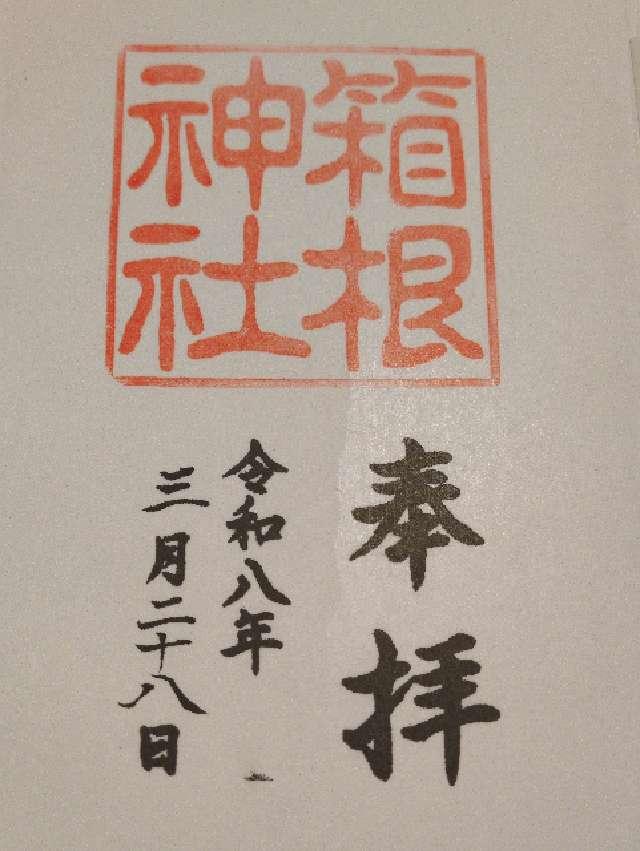 箱根
神社
奉拝
令和八年
三月二十八日